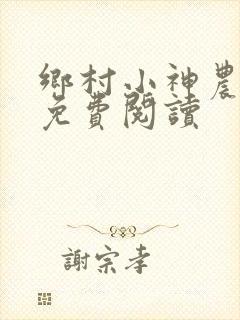 鄉村小神農
免費閱讀
謝宗孝